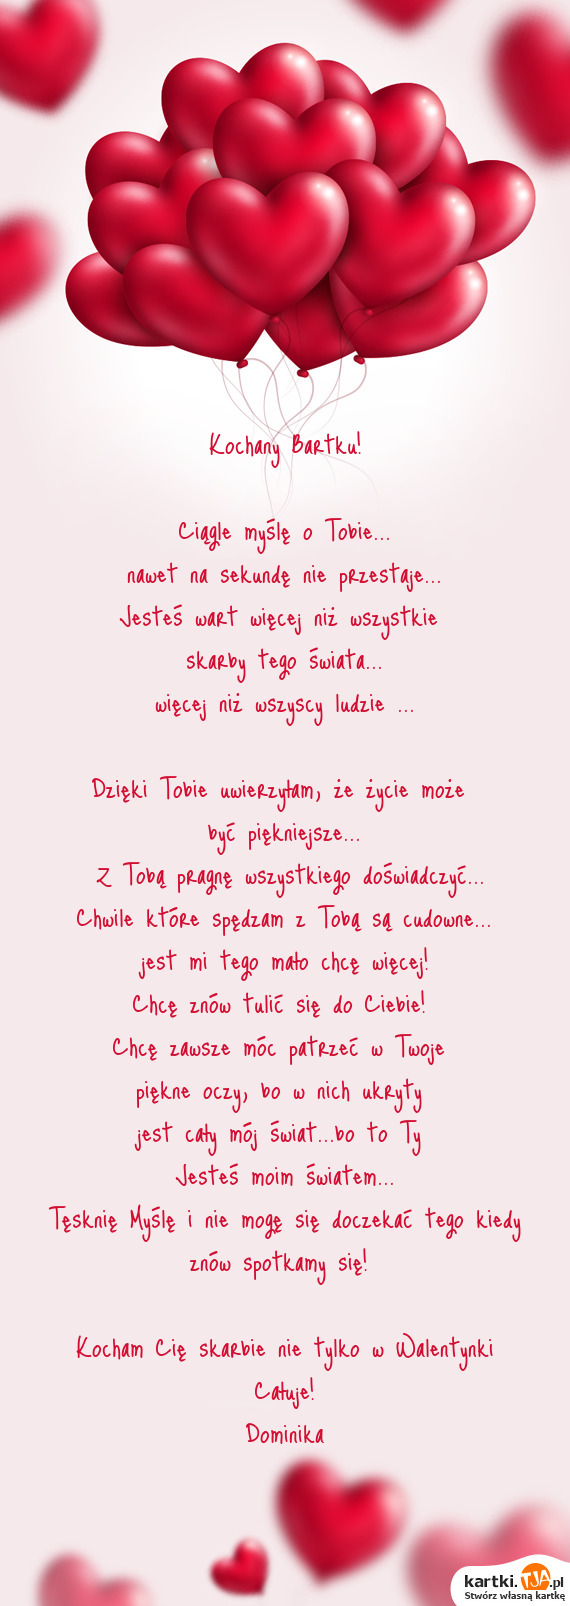 Kochany Bartku!
Ciągle myślę o Tobie...
nawet na sekundę nie przestaje...
Jesteś wart więcej niż wszystkie
skarby tego świata...
więcej niż wszyscy ludzie ...
Dzięki Tobie uwierzyłam, że życie może
być piękniejsze...
Z Tobą pragnę wszystkiego doświadczyć...
Chwile które spędzam z Tobą są cudowne...
jest mi tego mało chcę więcej!
Chcę znów tulić się do Ciebie!
Chcę zawsze móc patrzeć w Twoje
piękne oczy, bo w nich ukryty
jest cały mój świat...bo to Ty
Jesteś moim światem...
Tęsknię Myślę i nie mogę się doczekać tego kiedy
znów spotkamy się!
Kocham Cię skarbie nie tylko w Walentynki
Całuje!
Dominika
kartki.TJA.pl
Stwórz własną kartkę